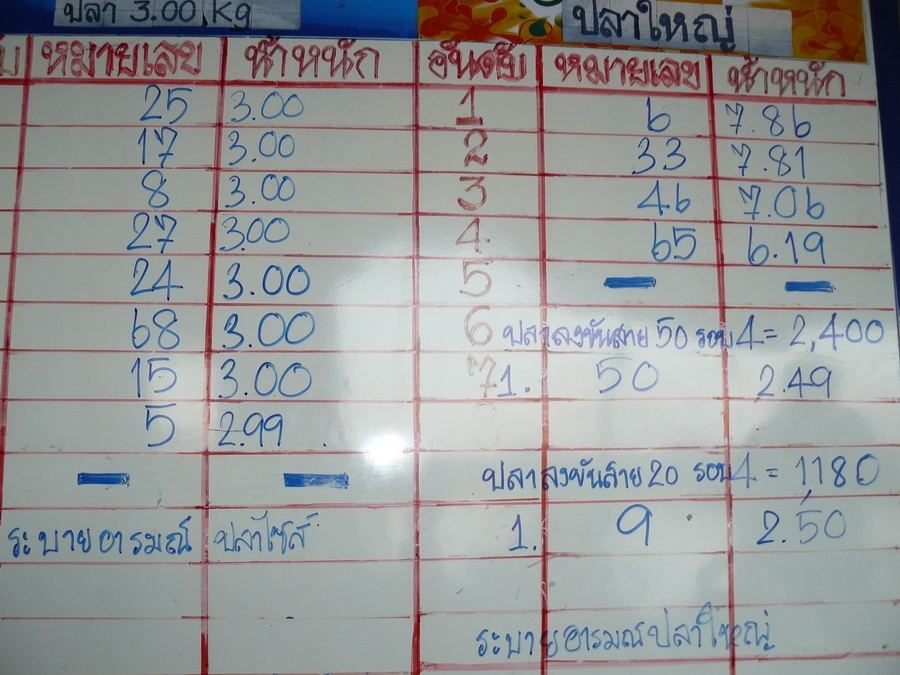 ปลา 3.00 Kg
ปลาใหญ่
หมายเลข น้ำหนัก อันดับ หมายเลข น้ำหนัก
25 3.00 1 6 7.86
17 3.00 2 33 7.81
8 3.00 3 46 7.06
27 3.00 4 65 6.19
24 3.00 5 - -
68 3.00 6 ปลาลงขันสาย 50 รอบ 4 = 2,400
15 3.00 7 1. 50 2.49
5 2.99
- - ปลาลงขันสาย 20 รอบ 4 = 1180
ระบายอารมณ์ ปลาไซส์ 1. 9 2.50
ระบายอารมณ์ปลาใหญ่